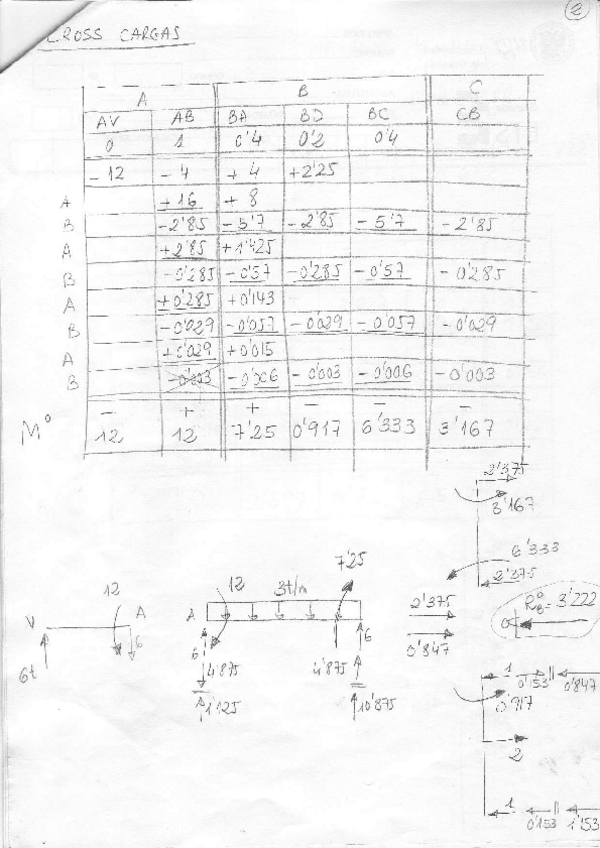 2
CROSS CARGAS
A B C
AV AB BA BD BC CB
0 1 0'4 0'2 0'4
-12 -4 +4 +2'25
A +16 +8
B -2'85 -5'7 -2'85 -5'7 -2'85
A +2'85 +1'425
B -0'285 -0'57 -0'285 -0'57 -0'285
A +0'285 +0'143
B -0'029 -0'057 -0'029 -0'057 -0'029
A +0'029 +0'015
B -0'003 -0'006 -0'003 -0'006 -0'003
M° - + + - - -
12 12 7'25 0'917 6'333 3'167
2'375
3'167
6'333
2'375
7'25
12
V A
6
6t
A 12 3t/m
6 6
4'875 4'875
1'125 10'875
2'375
0'847
R°B = 3'222
1
0'153 0'847
0'917
2
1
0'153 1'153